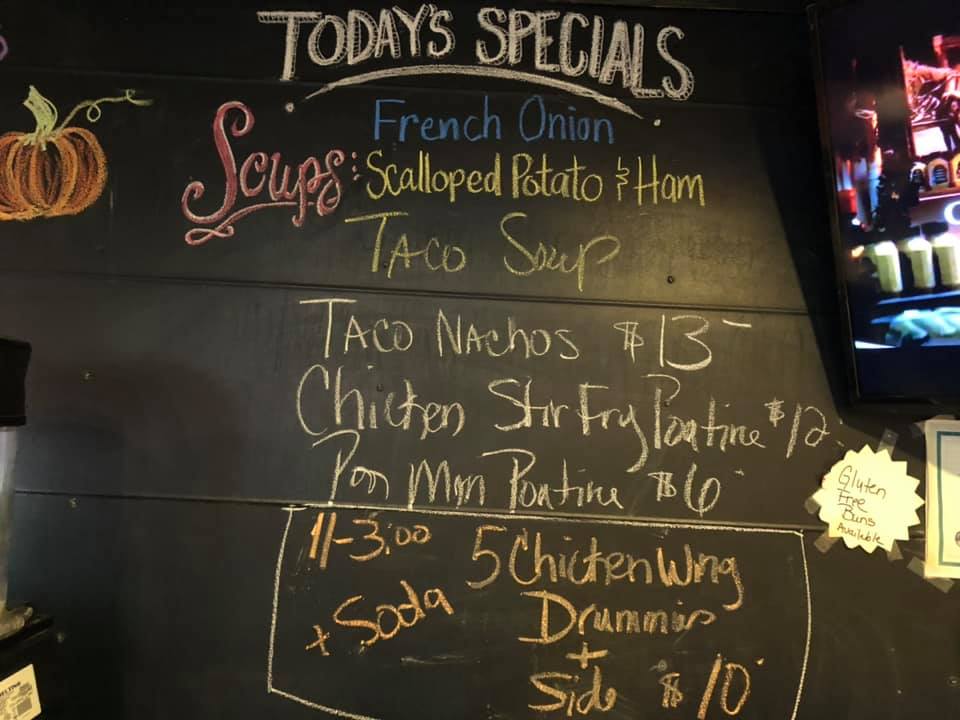 TODAY'S SPECIALS
Soups: French Onion
Scalloped Potato & Ham
TACO Soup
TACO NACHOS $13-
Chicken Stir Fry Poutine $12
Pon Mon Poutine $6
11-3:00
+ Soda
5 Chicken Wing
Drummies
+
Side $10
Gluten
Free
Buns
Available